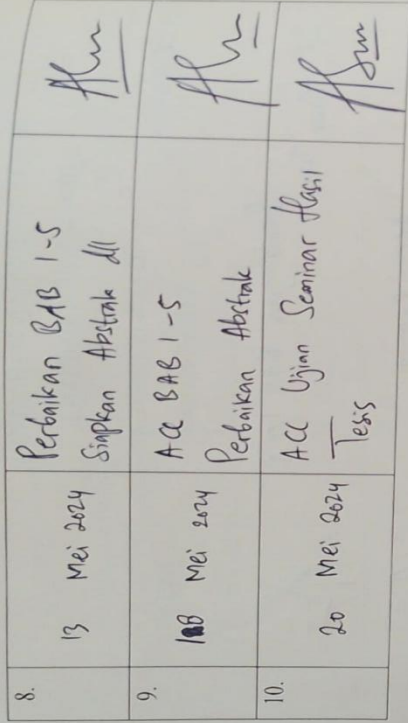 8.
13 Mei 2024
Perbaikan BAB 1-5
Siapkan Abstrak dll
9.
18 Mei 2024
ACC BAB 1-5
Perbaikan Abstrak
10.
20 Mei 2024
ACC Ujian Seminar Hasil
Tesis